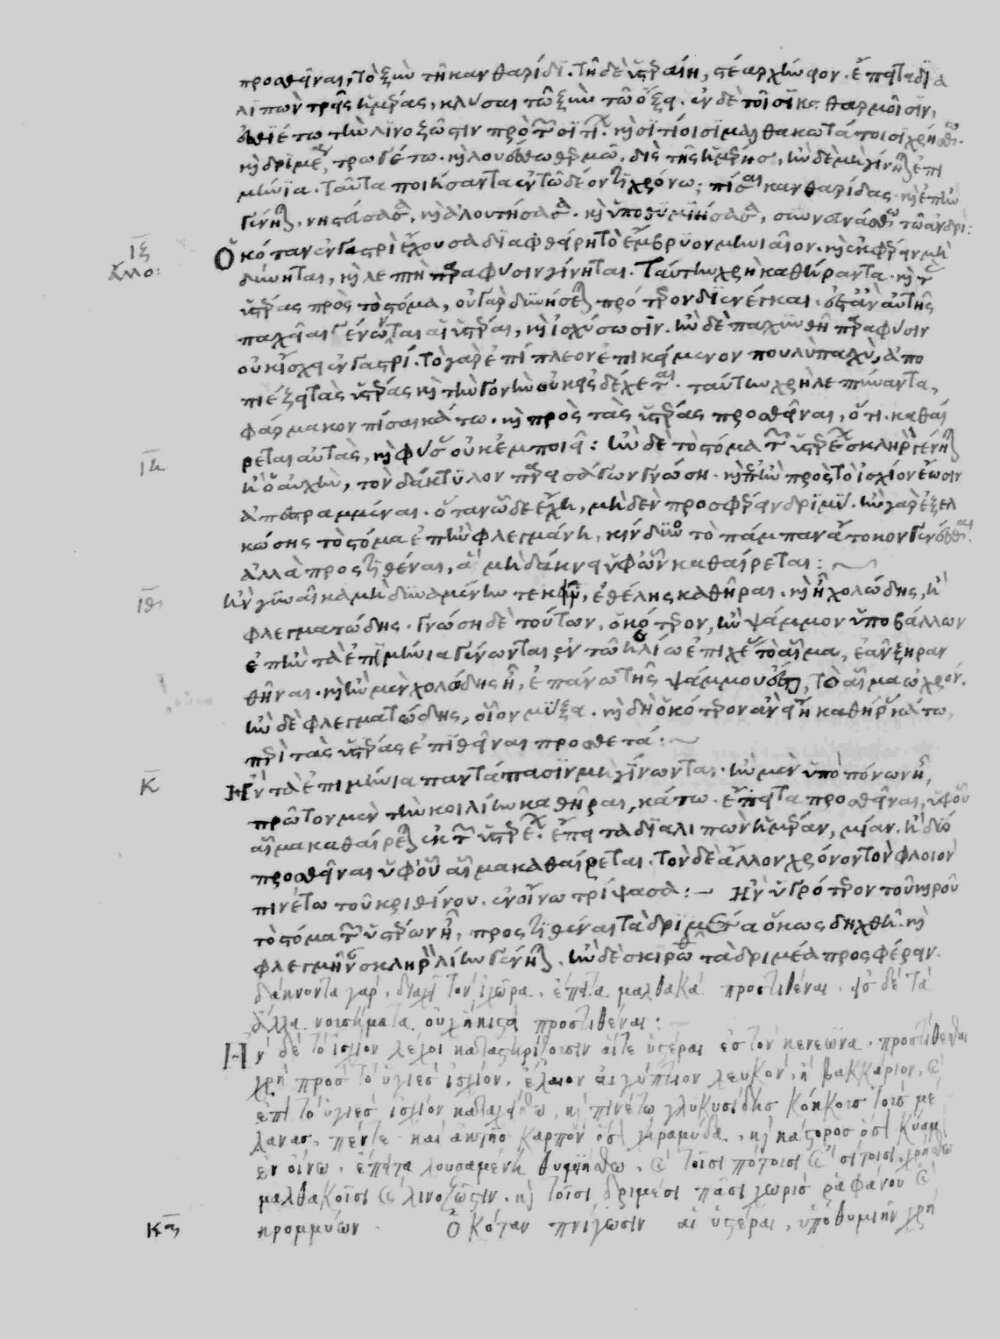 προσθεῖναι, τὸ ξὺν τῇ κανθαρίδι. τῇ δὲ ὑστεραίῃ, στέαρ χήνειον. ἔπειτα δια
λιπὼν τρεῖς ἡμέρας, κλύσαι τῷ ξὺν τῷ ὄξει. ἐν δὲ τοῖσι καθαρμοῖσιν,
ἐσθιέτω τὴν λινόζωστιν πρὸ τοῦ σιτίου. καὶ σιτίοισι μαλθακωτάτοισι χρήσθω.
καὶ δριμέα τρωγέτω. καὶ λουέσθω θερμῷ, δὶς τῆς ἡμέρης, ἢν δὲ μὴ γίνηται ἐπι
μήνια. ταῦτα ποιήσαντα ἐν τῷ δέοντι χρόνῳ, πῖσαι κανθαρίδας. καὶ ἐπὴν
γένηται, νηστεύσασα, καὶ ἀλουτήσασα. καὶ ὑποθυμιήσασα, συνευνάσθω τῷ ἀνδρί:
ιζ ὁκόταν ἐν γαστρὶ ἔχουσα διαφθείρῃ τὸ ἔμβρυον μηνιαῖον. καὶ ἐκφέρειν μὴ
ἄλλο: δύνηται, καὶ λεπτὴ παρὰ φύσιν γίνηται. ταύτην χρὴ καθήραντα. καὶ τὰς
ὑστέρας πρὸς τὸ στόμα, οὐ γὰρ δυνήσεται πρότερον διενέγκαι. ἔστ' ἂν αὐτῆς
παχεῖαι γένωνται αἱ ὑστέραι, καὶ ἰσχύσωσιν. ἢν δὲ παχυνθῇ παρὰ φύσιν
οὐκ ἴσχει ἐν γαστρί. τὸ γὰρ ἐπίπλεον ἐπικείμενον πουλὺ παχὺ, ἀπο
πιέζει τὰς ὑστέρας καὶ τὴν γονὴν οὐκ εἰσδέχεται. ταύτην χρὴ λεπτύναντα,
φάρμακον πῖσαι κάτω. καὶ πρὸς τὰς ὑστέρας προσθεῖναι, ὅ τι καθαί
ρεται αὐτὰς, καὶ φῦσαν οὐκ ἐμποιεῖ: ἢν δὲ τὸ στόμα τῶν ὑστερέων σκληρὸν γένηται
ιη ἢ ὁ αὐχὴν, τὸν δάκτυλον παρεῖσα γὰρ γνώσῃ. καὶ ἢν πρὸς τὸ ἰσχίον ἔωσιν
ἀπεστραμμέναι. ὅταν ὧδε ἔχῃ, μηδὲν προσφέρειν δριμύ. ἢν γὰρ ἐξελ
κώσῃς τὸ στόμα ἐπὴν φλεγμαίνῃ, κίνδυνος τὸ πάμπαν ἄτοκον γενέσθαι.
ἀλλὰ προστιθέναι, ἃ μὴ δάκνει ὑφ' ὧν καθαίρεται:
ιθ ἢν γυναῖκα μὴ δυναμένην τεκεῖν, ἐθέλῃς καθῆραι. καὶ ᾖ χολώδης, ἢ
φλεγματώδης. γνώσῃ δὲ τούτων, ὁκότερον, ἢν ψάμμον ὑποβάλλων
ἐπὴν τὰ ἐπιμήνια γένωνται ἐν τῷ ἡλίῳ ἐπιχέῃ τὸ αἷμα, ἐᾶν ξηραν
θῆναι. καὶ ἢν μὲν χολώδης ᾖ, ἐπάνω τῆς ψάμμου ἔσται, τὸ αἷμα ὠχρόν.
ἢν δὲ φλεγματώδης, οἷον μύξα. καὶ δὴ ὁκότερον ἂν ᾖ καθῆραι κάτω,
περὶ τὰς ὑστέρας ἐπιθεῖναι προσθετά:
κ Ἢν τὰ ἐπιμήνια παντάπασιν μὴ γίνωνται. ἢν μὲν ὑπὸ πόνων ᾖ,
πρῶτον μὲν τὴν κοιλίην καθῆραι, κάτω. ἔπειτα προσθεῖναι, ὑφ' οὗ
αἷμα καθαίρεται ἐκ τῶν ὑστερέων. ἔπειτα διαλιπὼν ἡμέραν, μίαν. ἢ δύο
προσθεῖναι ὑφ' οὗ αἷμα καθαίρεται. τὸν δὲ ἄλλον χρόνον τὸν φλοιὸν
πινέτω τοῦ κριθίνου. ἐν οἴνῳ τρίψασα: Ἢν ὑγρότερον τοῦ καιροῦ
τὸ στόμα τῶν ὑστερέων ᾖ, προστιθέναι τὰ δριμέα ὅκως δηχθῇ. καὶ
φλεγμῆναν σκληρὸν λίην γένηται. ἢν δὲ σκιρωθῇ τὰ δριμέα προσφέρειν.
δάκνοντα γὰρ, διαχεῖ τὸν ἰχῶρα. ἔπειτα μαλθακὰ προστιθέναι. ἐς δὲ τὰ
ἄλλα νοσήματα οὐχ ἥκιστα προστιθέναι:
Ἢν δὲ τὸ ἰσχίον λέχοι καταστηρίζωσιν αἵ τε ὑστέραι ἐς τὸν κενεῶνα. προστίθεσθαι
χρὴ πρὸς τὸ ὑγιὲς ἰσχίον, ἔλαιον αἰγύπτιον λευκόν, ἢ βακκάριον, καὶ
ἐπὶ τὸ ὑγιὲς ἰσχίον κατακείσθω, καὶ πινέτω γλυκυσίδης κόκκους τοὺς μέ
λανας, πέντε. καὶ ἀκτῆς καρπὸν ὅσον χηραμύδα, καὶ κάστορος ὅσον κύαμον
ἐν οἴνῳ. ἔπειτα λουσαμένη θυμιήσθω, καὶ τοῖσι πότοισι καὶ σίτοισι, χρήσθω
μαλθακοῖσι καὶ λινοζώστιν. καὶ τοῖσι δριμέσι πᾶσι χωρὶς ῥαφάνου καὶ
κα κρομμύων Ὁκόταν πνίγωσιν αἱ ὑστέραι, ὑποθυμιῆν χρὴ